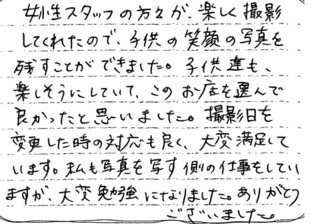 女性スタッフの方々が、楽しく撮影
してくれたので、子供の笑顔の写真を
残すことができました。子供達も、
楽しそうにしていて、このお店を選んで
良かったと思いました。撮影日を
変更した時の対応も良く、大変満足して
います。私も写真を写す側の仕事をしてい
ますが、大変勉強になりました。ありがとう
ございました。